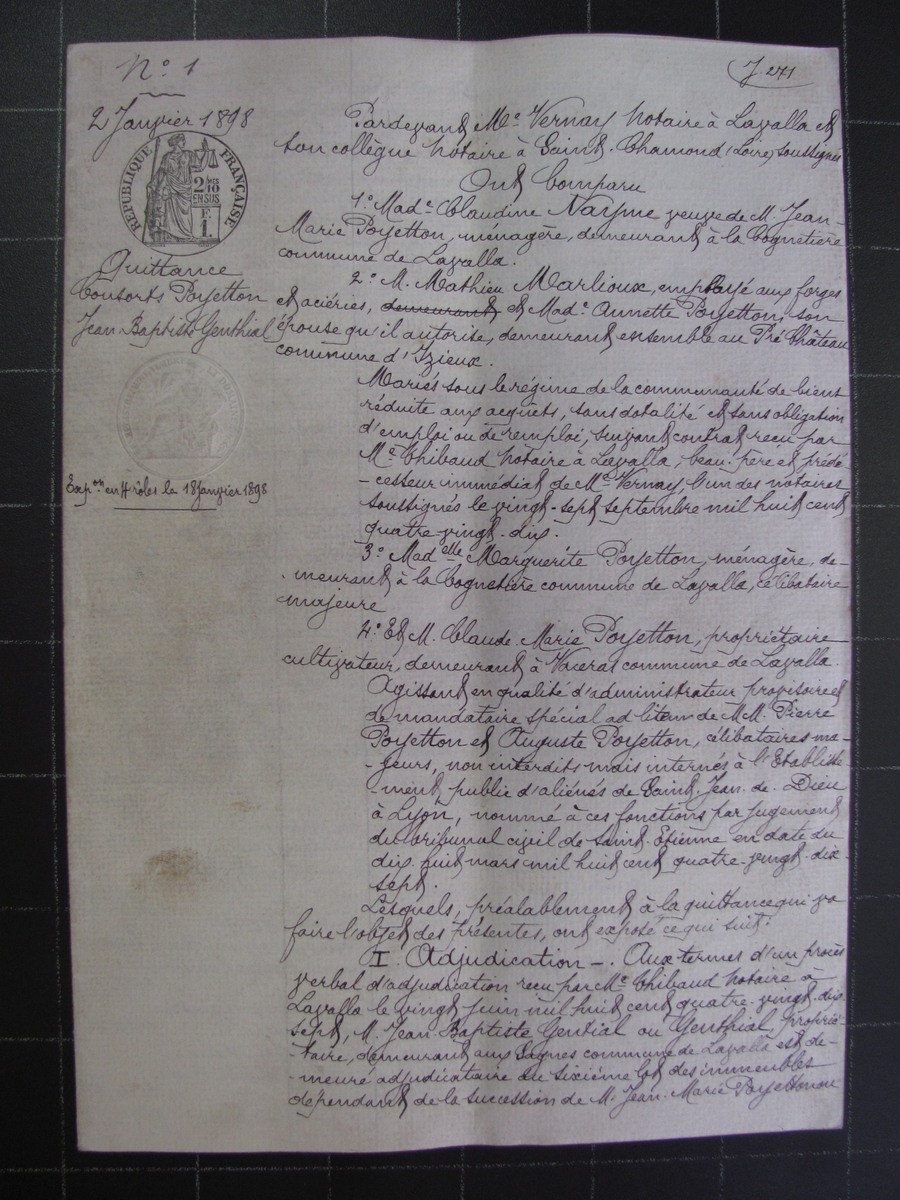 N° 1
J. 271
2 Janvier 1898
RÉPUBLIQUE FRANÇAISE
2/10
EN SUS
F
1.
Quittance
Consorts Poyetton
Jean Baptiste Genthial
Exp.on en 4 rôles le 18 Janvier 1898
Pardevant Me Vernay Notaire à Lavalla et
son collègue Notaire à Saint-Chamond (Loire) soussignés
Ont Comparu
1° Made Claudine Nayme veuve de M. Jean-
Marie Poyetton, ménagère, demeurant à la Cognetière
commune de Lavalla.
2° M. Mathieu Marlioux, employé aux forges
et aciéries, demeurant et Made Annette Poyetton, son
épouse qu'il autorise, demeurant ensemble au Pré Château
commune d'Izieux.
Mariés sous le régime de la communauté de biens
réduite aux acquêts, sans dotalité et sans obligation
d'emploi ou de remploi, suivant contrat reçu par
Me Thibaud Notaire à Lavalla, beau-père et prédé-
-cesseur immédiat de Me Vernay, l'un des notaires
soussignés le vingt-sept septembre mil huit cent
quatre-vingt-dix.
3° Madelle Marguerite Poyetton, ménagère, de-
-meurant à la Cognetière commune de Lavalla, célibataire
majeure
4° Et M. Claude Marie Poyetton, propriétaire
cultivateur, demeurant à commune de Lavalla.
Agissant en qualité d'administrateur provisoire et
de mandataire spécial ad litem de MM. Pierre
Poyetton et Auguste Poyetton, célibataires ma-
-jeurs, non interdits mais internés à l'Etablisse-
-ment public d'aliénés de Saint-Jean-de-Dieu
à Lyon, nommé à ces fonctions par jugement
du tribunal civil de Saint-Etienne en date du
dix-huit mars mil huit cent quatre-vingt-dix-
sept.
Lesquels, préalablement à la quittance qui va
faire l'objet des présentes, ont exposé ce qui suit:
I. Adjudication -. Aux termes d'un procès
verbal d'adjudication reçu par Me Thibaud Notaire à
Lavalla le vingt juin mil huit cent quatre-vingt-dix
sept, M. Jean-Baptiste Gential ou Genthial, proprié-
-taire, demeurant aux Sagnes commune de Lavalla est de-
-meuré adjudicataire du sixième lot des immeubles
dépendant de la succession de M. Jean-Marie Poyetton ou